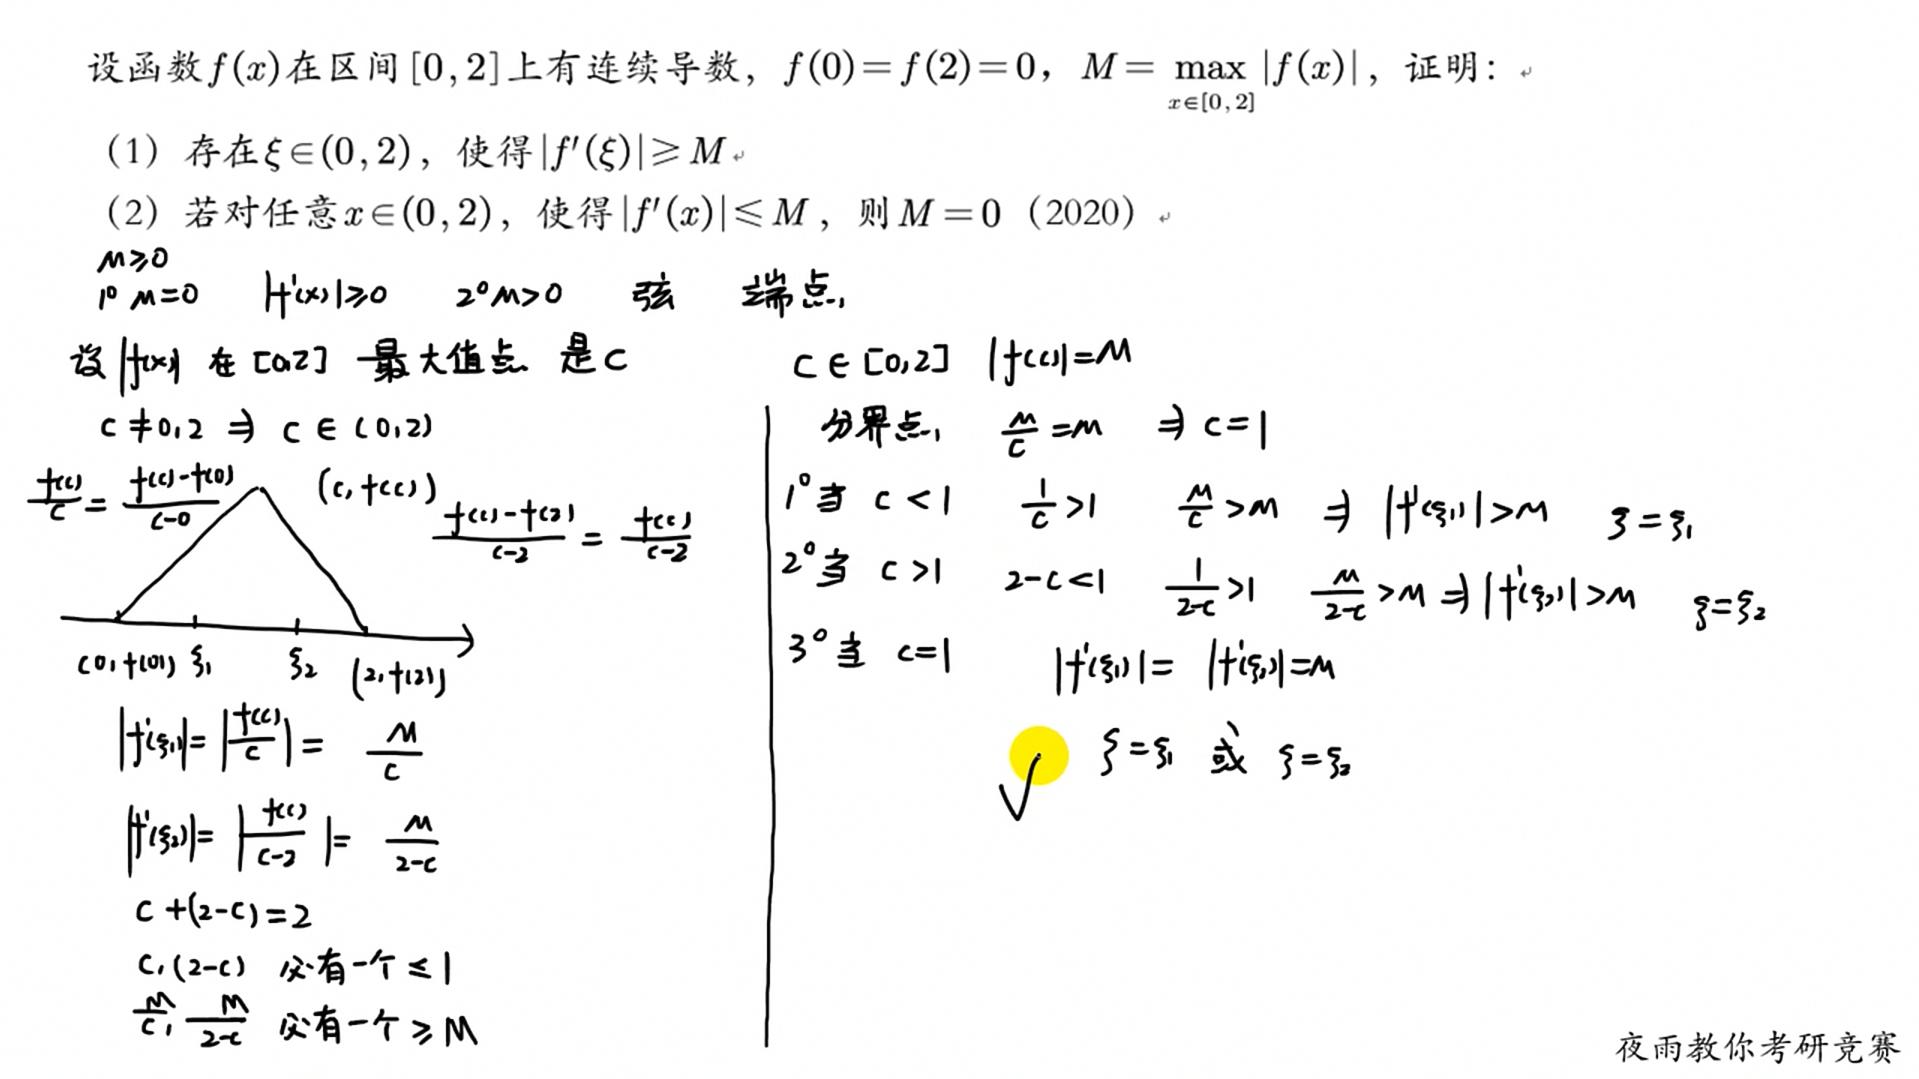 设函数f(x)在区间[0,2]上有连续导数，f(0)=f(2)=0，M=max|f(x)|，证明：
x∈[0,2]
（1）存在ξ∈(0,2)，使得|f′(ξ)|≥M
（2）若对任意x∈(0,2)，使得|f′(x)|≤M，则M=0（2020）
M≥0
1° M=0 |f'(x)|≥0 2° M>0 弦 端点,
设|f(x)| 在[0,2] 最大值点 是c
c≠0,2 ⇒ c∈(0,2)
f(c)/c = (f(c)-f(0))/(c-0) (c,f(c)) (f(c)-f(2))/(c-2) = f(c)/(c-2)
(0,f(0)) ξ₁ ξ₂ (2,f(2))
|f'(ξ₁)|=|f(c)/c|= M/c
|f'(ξ₂)|=|f(c)/(c-2)|= M/(2-c)
c+(2-c)=2
c,(2-c) 必有一个≤1
M/c, M/(2-c) 必有一个≥M
c∈[0,2] |f(c)|=M
分界点, M/c=M ⇒ c=1
1°当 c<1 1/c>1 M/c>M ⇒ |f'(ξ₁)|>M ξ=ξ₁
2°当 c>1 2-c<1 1/(2-c)>1 M/(2-c)>M ⇒|f'(ξ₂)|>M ξ=ξ₂
3°当 c=1 |f'(ξ₁)|= |f'(ξ₂)|=M
√ ξ=ξ₁ 或 ξ=ξ₂
夜雨教你考研竞赛